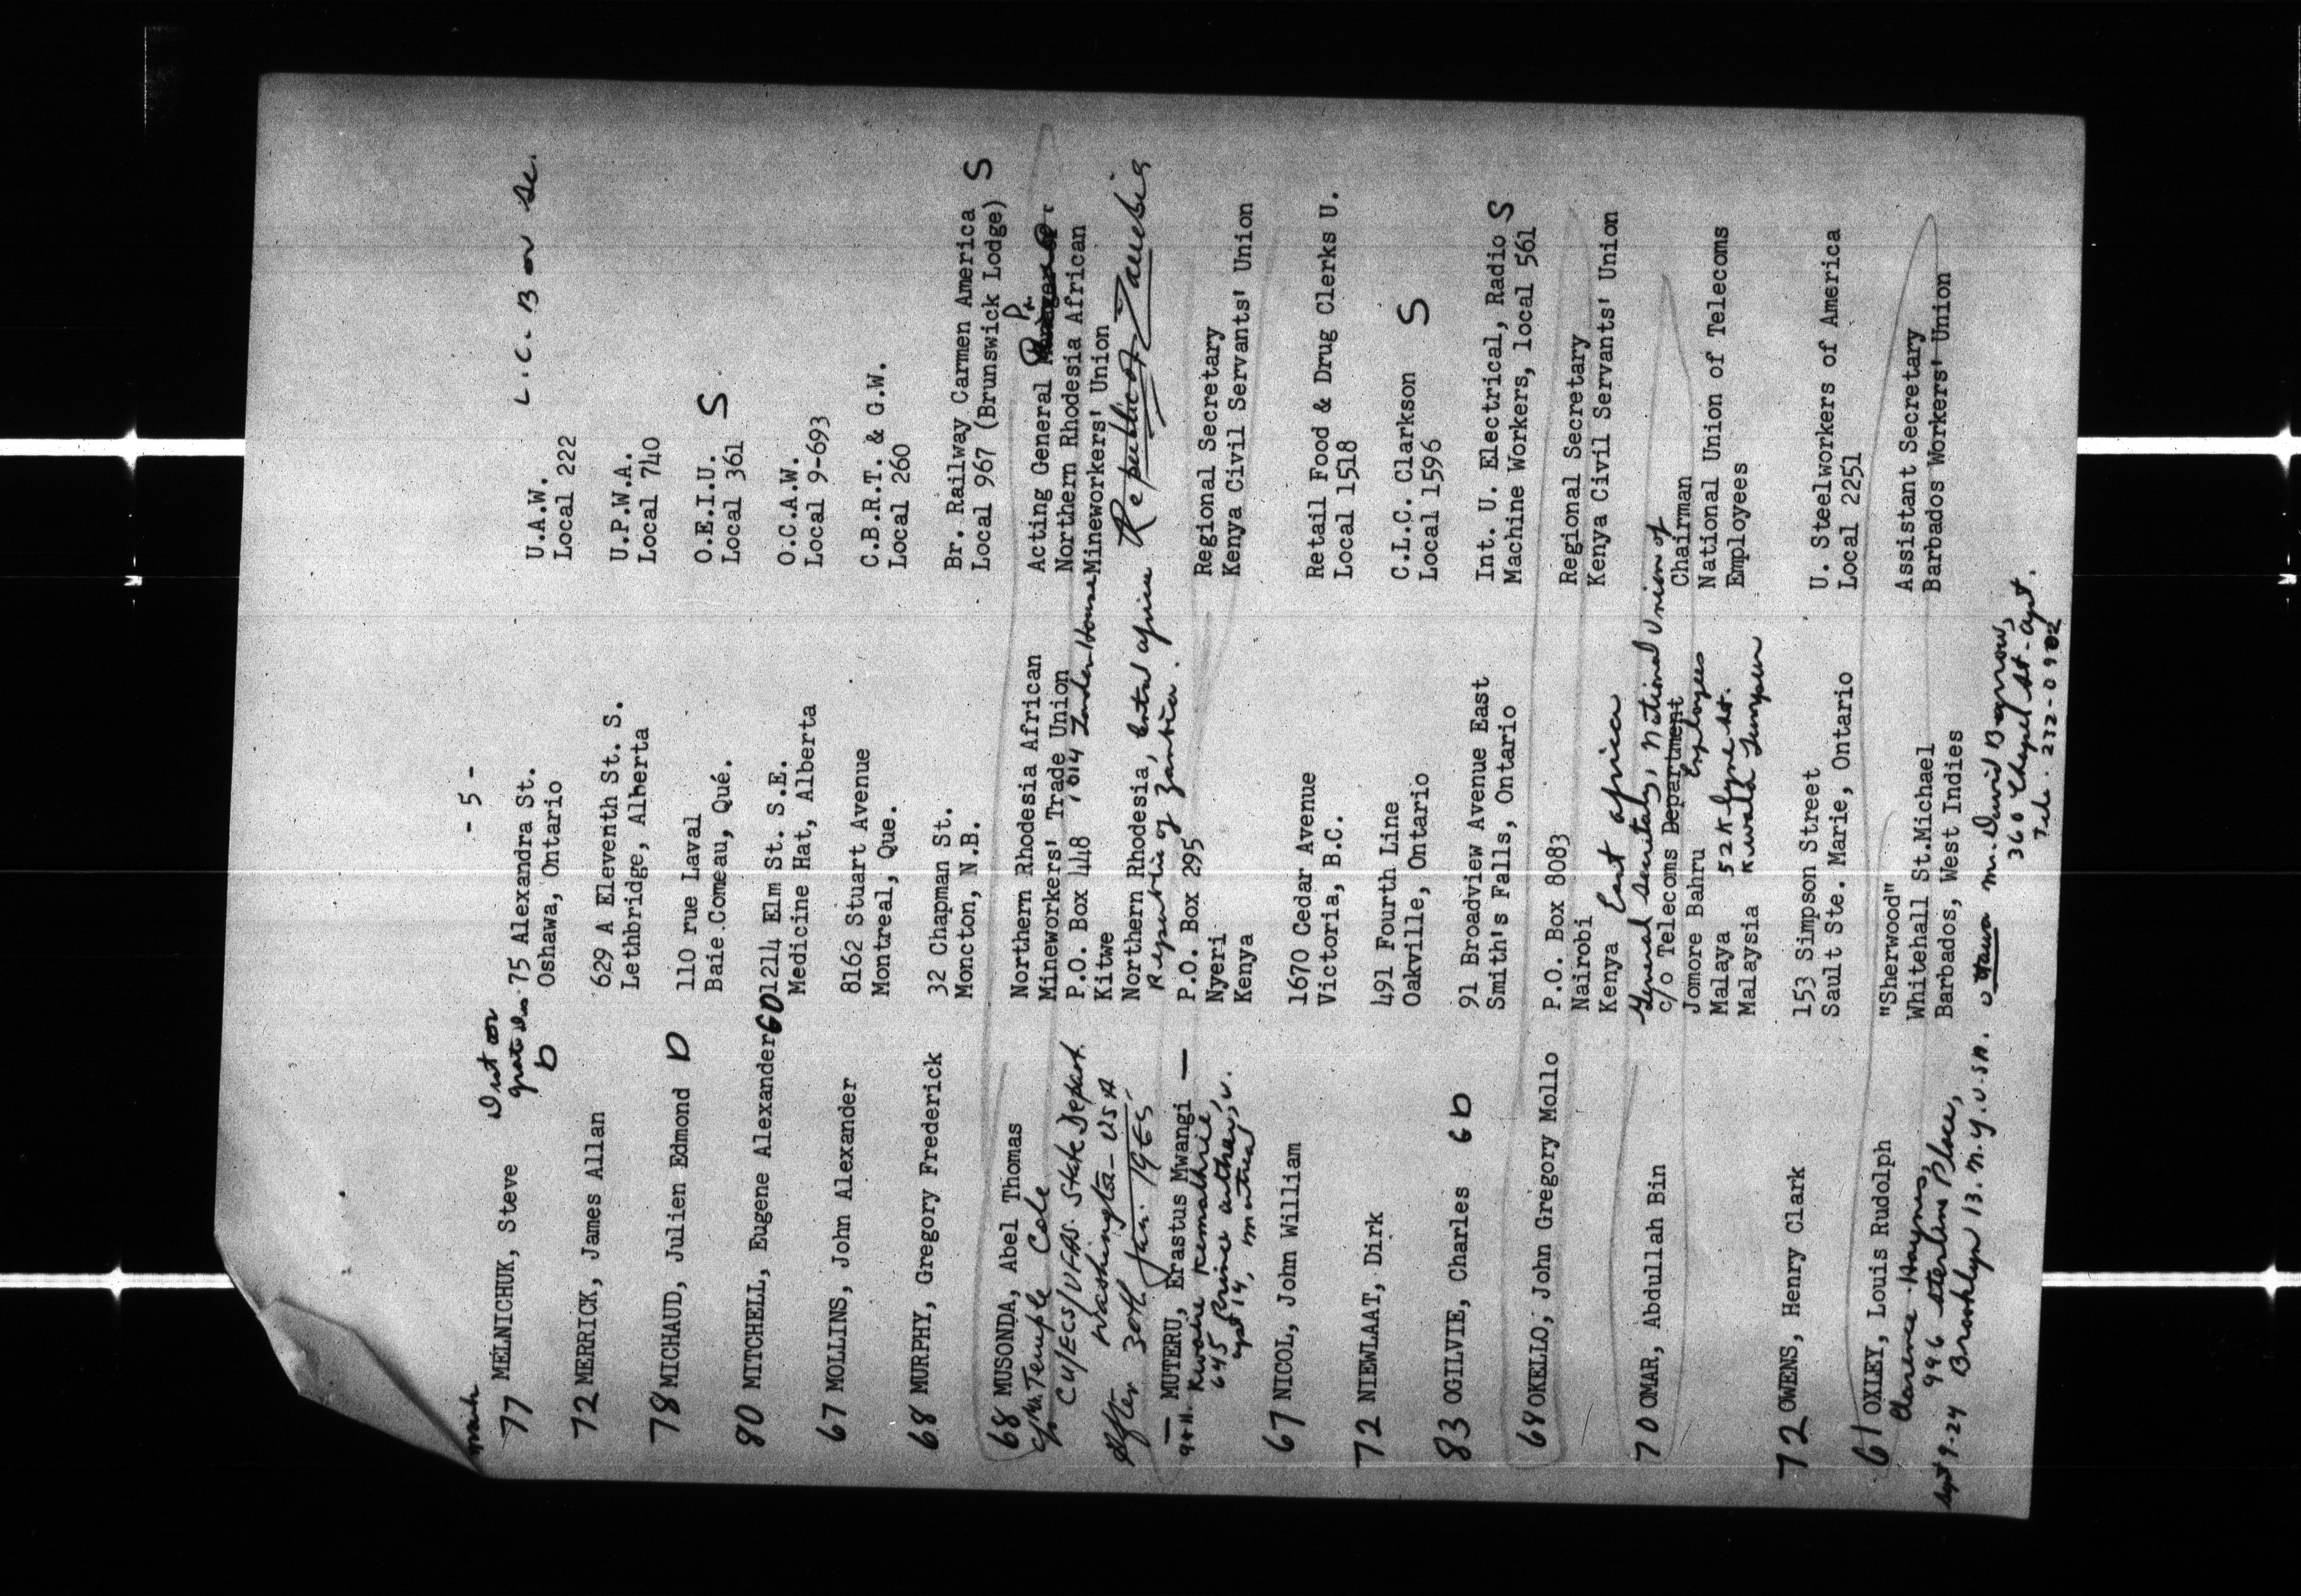 - 5 -
L.C.B or Sc.
mark
77 MELNICHUK, Steve D 75 Alexandra St. U.A.W.
Oshawa, Ontario Local 222
72 MERRICK, James Allan 629 A Eleventh St. S. U.P.W.A.
Lethbridge, Alberta Local 740
78 MICHAUD, Julien Edmond D 110 rue Laval O.E.I.U. S
Baie Comeau, Qué. Local 361
80 MITCHELL, Eugene Alexander GD 1214 Elm St. S.E. O.C.A.W.
Medicine Hat, Alberta Local 9-693
67 MOLLINS, John Alexander 8162 Stuart Avenue C.B.R.T. & G.W.
Montreal, Que. Local 260
68 MURPHY, Gregory Frederick 32 Chapman St. Br. Railway Carmen America S
Moncton, N.B. Local 967 (Brunswick Lodge)
68 MUSONDA, Abel Thomas Northern Rhodesia African Acting General
c/o Mr. Temple Cole Mineworkers' Trade Union Northern Rhodesia African
CU/ECS/UFAS. State Depart. P.O. Box 448, House Mineworkers' Union
Washington - USA Kitwe
After 30th Jan. 1965 Northern Rhodesia, Central Africa Republic of Zambia
Republic of Zambia.
— MUTERU, Erastus Mwangi — P.O. Box 295 Regional Secretary
Nyeri Kenya Civil Servants' Union
645 Prince Arthur, W. Kenya
apt 14, Montreal
67 NICOL, John William 1670 Cedar Avenue Retail Food & Drug Clerks U.
Victoria, B.C. Local 1518
72 NIEWLAAT, Dirk 491 Fourth Line C.L.C. Clarkson S
Oakville, Ontario Local 1596
83 OGILVIE, Charles GD 91 Broadview Avenue East Int. U. Electrical, Radio S
Smith's Falls, Ontario Machine Workers, local 561
68 OKELLO, John Gregory Mollo P.O. Box 8083 Regional Secretary
Nairobi Kenya Civil Servants' Union
Kenya East Africa
General Secretary, National Union of
70 OMAR, Abdullah Bin c/o Telecoms Department Employees Chairman
Jomore Bahru National Union of Telecoms
Malaya 52 Klyne St. Employees
Malaysia Kuwala Lumpur
72 OWENS, Henry Clark 153 Simpson Street U. Steelworkers of America
Sault Ste. Marie, Ontario Local 2251
61 OXLEY, Louis Rudolph "Sherwood" Assistant Secretary
Clarence Haynes, Whitehall St.Michael Barbados Workers' Union
996 Sterline Place, Barbados, West Indies
Sept 9-24 Brooklyn 13. N.Y. U.S.A. Ottawa M. David Barrow,
360 Chapel St. Apt.
Tele. 232-0982